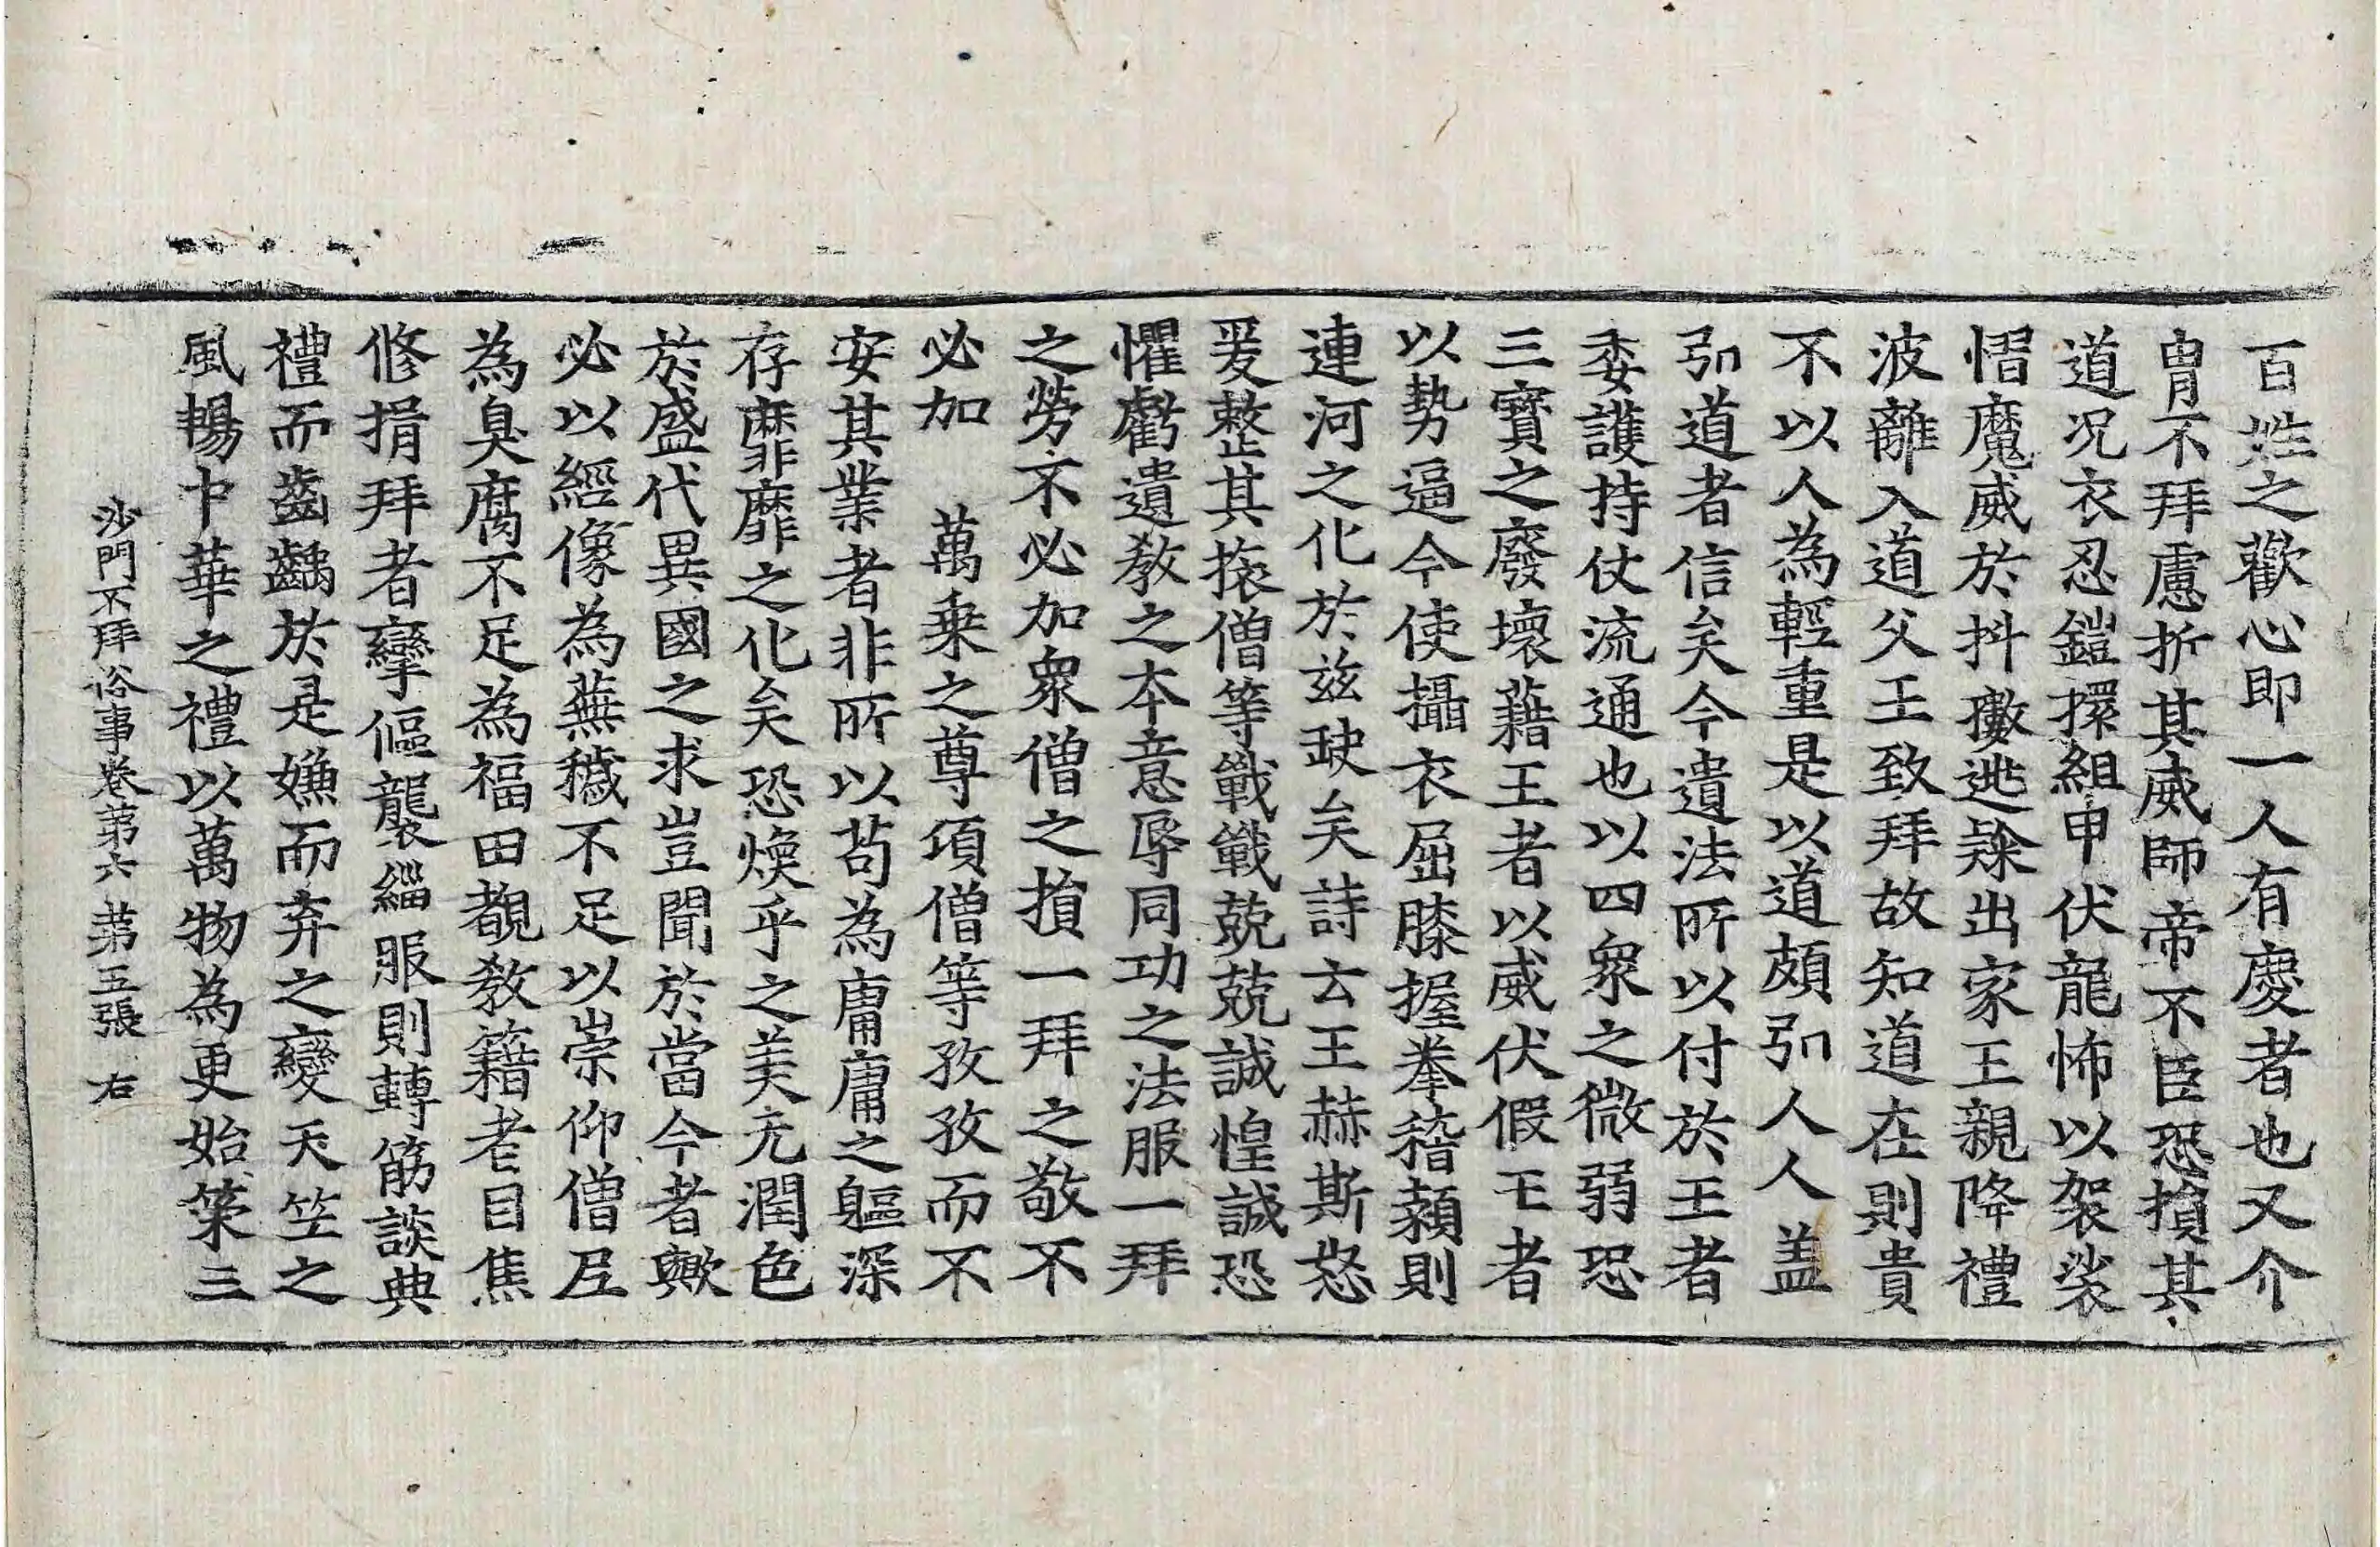 百姓之歡心即一人有慶者也又介
胄不拜慮折其威師帝不臣恐損其
道况衣忍鎧擐組甲伏龍怖以袈裟
慴魔威於抖擻逃榮出家王親降禮
波離入道父王致拜故知道在則貴
不以人為輕重是以道頗引人人盖
引道者信矣今遺法所以付於王者
委護持仗流通也以四衆之微弱恐
三寶之廢壞藉王者以威伏假王者
以勢逼今使攝衣屈膝握拳稽顙則
連河之化於兹缺矣詩云王赫斯怒
爰整其旅僧等戰戰兢兢誠惶誠恐
懼虧遺敎之本意辱同功之法服一拜
之勞不必加衆僧之損一拜之敬不
必加　萬乗之尊項僧等孜孜而不
安其業者非所以苟為庸庸之軀深
存靡靡之化矣恐煥乎之美充潤色
於盛代異國之求豈聞於當今者歟
必以經像為蕪穢不足以崇仰僧尼
為臭腐不足為福田覩敎籍耄目焦
修捐拜者攣傴襲緇服則轉筋談典
禮而齒齲於是嫌而弃之變天竺之
風暢中華之禮以萬物為更始策三
沙門不拜俗事卷第六　第五張　右